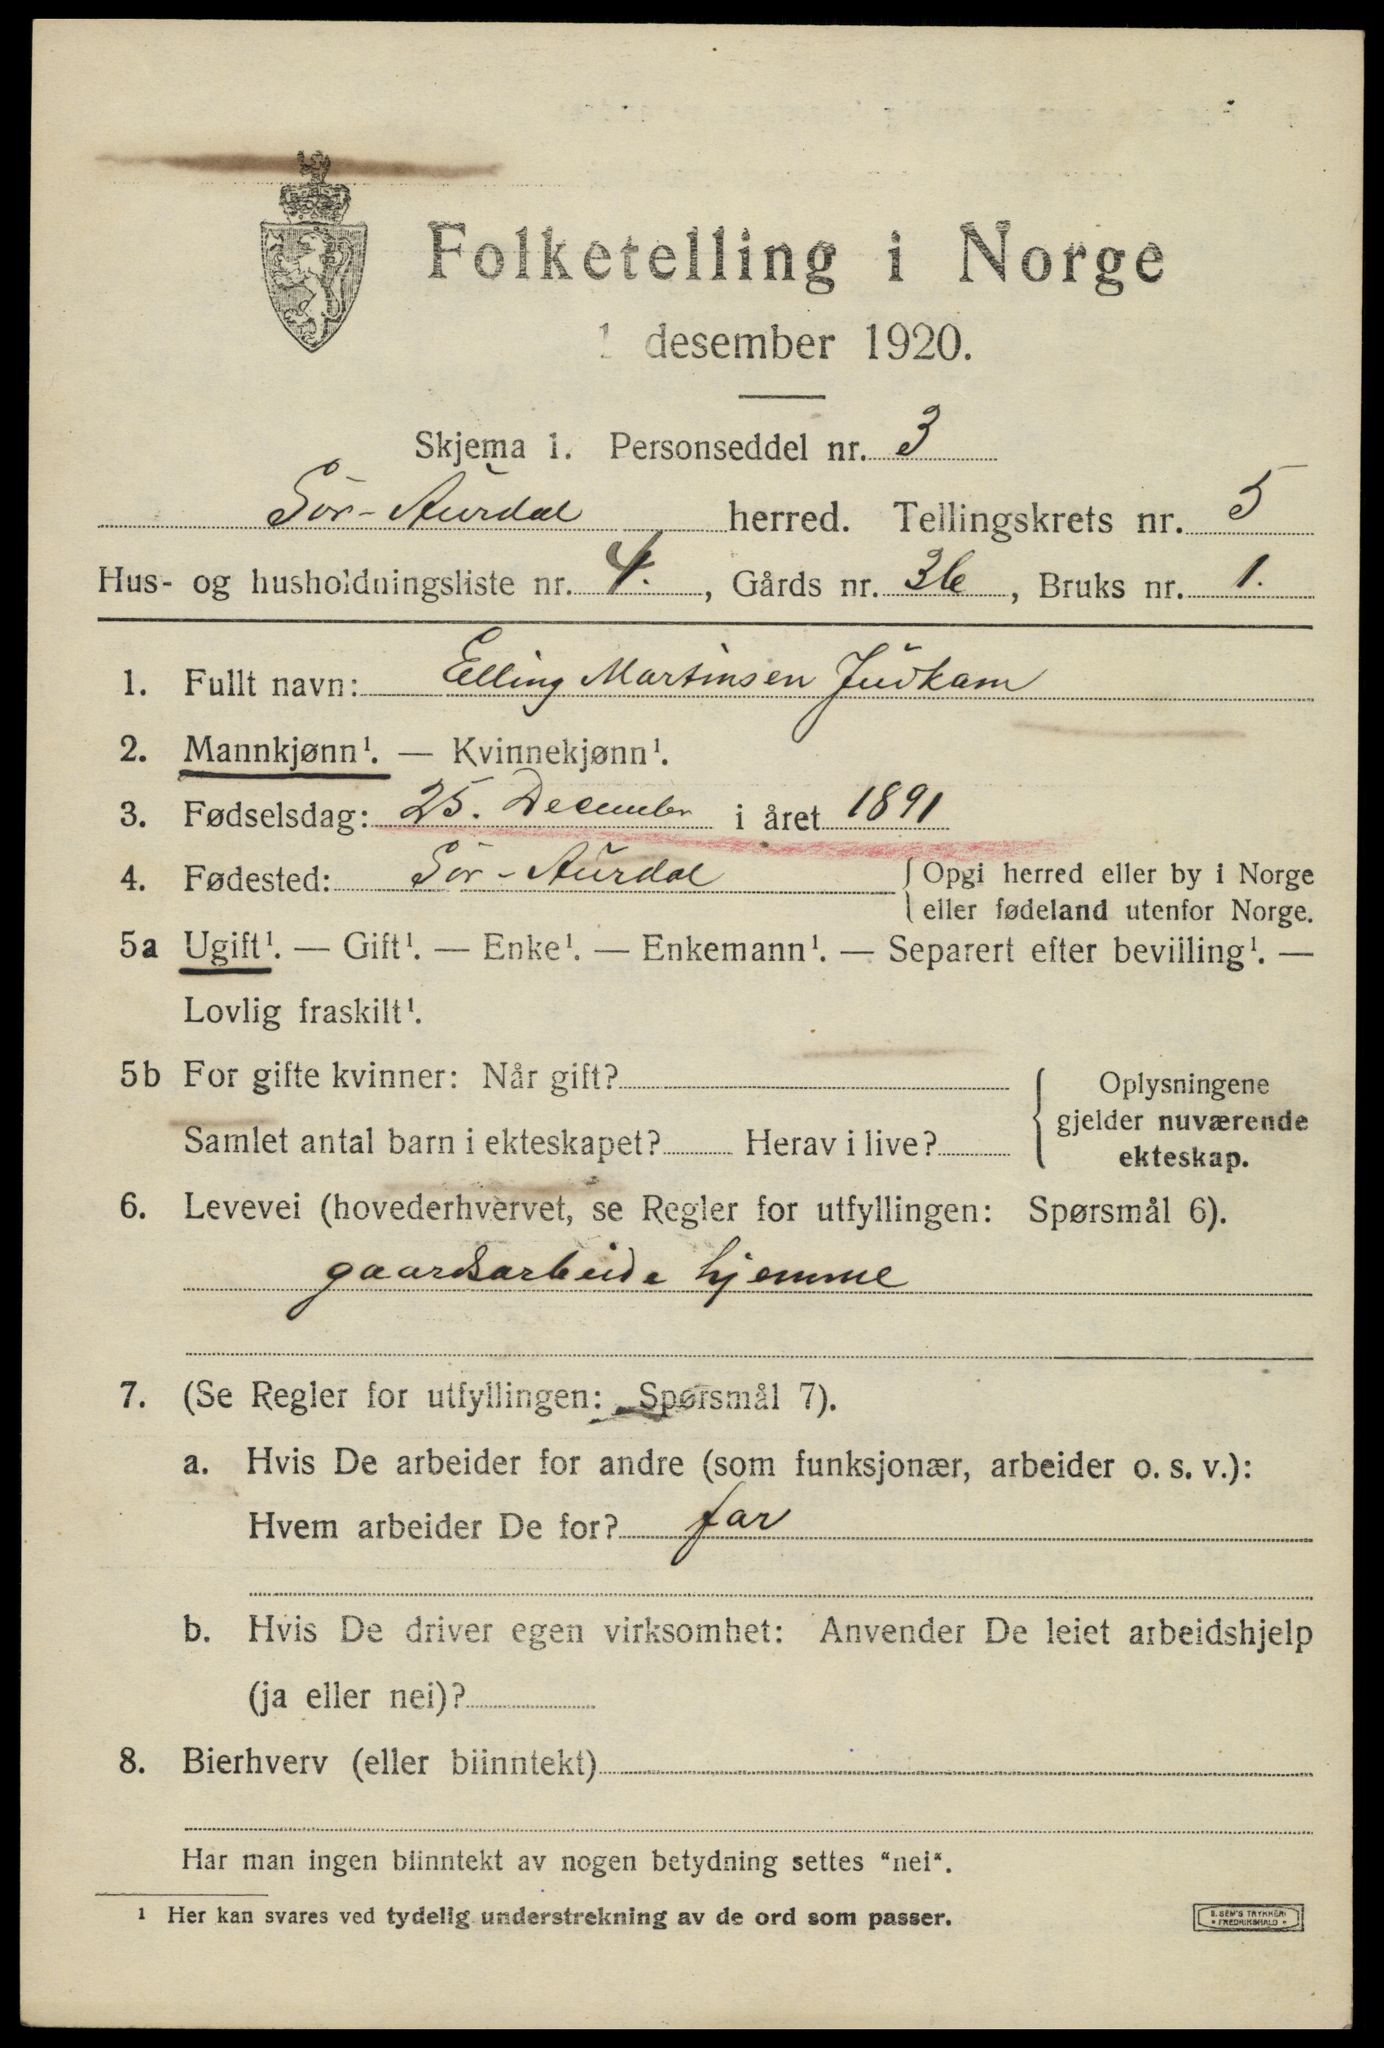 Folketelling i Norge
1 desember 1920.
Skjema 1. Personseddel nr. 3
Sør-Aurdal herred. Tellingskrets nr. 5
Hus- og husholdningsliste nr. 4., Gårds nr. 36, Bruks nr. 1.
1. Fullt navn: Elling Martinsen Juvkam
2. Mannkjønn¹. — Kvinnekjønn¹.
3. Fødselsdag: 25. December i året 1891
4. Fødested: Sør-Aurdal { Opgi herred eller by i Norge
eller fødeland utenfor Norge.
5a Ugift¹. — Gift¹. — Enke¹. — Enkemann¹. — Separert efter bevilling¹. —
Lovlig fraskilt¹.
5b For gifte kvinner: Når gift?
Samlet antal barn i ekteskapet? Herav i live?
{ Oplysningene
gjelder nuværende
ekteskap.
6. Levevei (hovederhvervet, se Regler for utfyllingen: Spørsmål 6).
gaardsarbeide hjemme
7. (Se Regler for utfyllingen: Spørsmål 7).
a. Hvis De arbeider for andre (som funksjonær, arbeider o. s. v.):
Hvem arbeider De for? far
b. Hvis De driver egen virksomhet: Anvender De leiet arbeidshjelp
(ja eller nei)?
8. Bierhverv (eller biinntekt)
Har man ingen biinntekt av nogen betydning settes "nei".
¹ Her kan svares ved tydelig understrekning av de ord som passer.
E. SEM'S TRYKKERI
• FREDRIKSHALD •